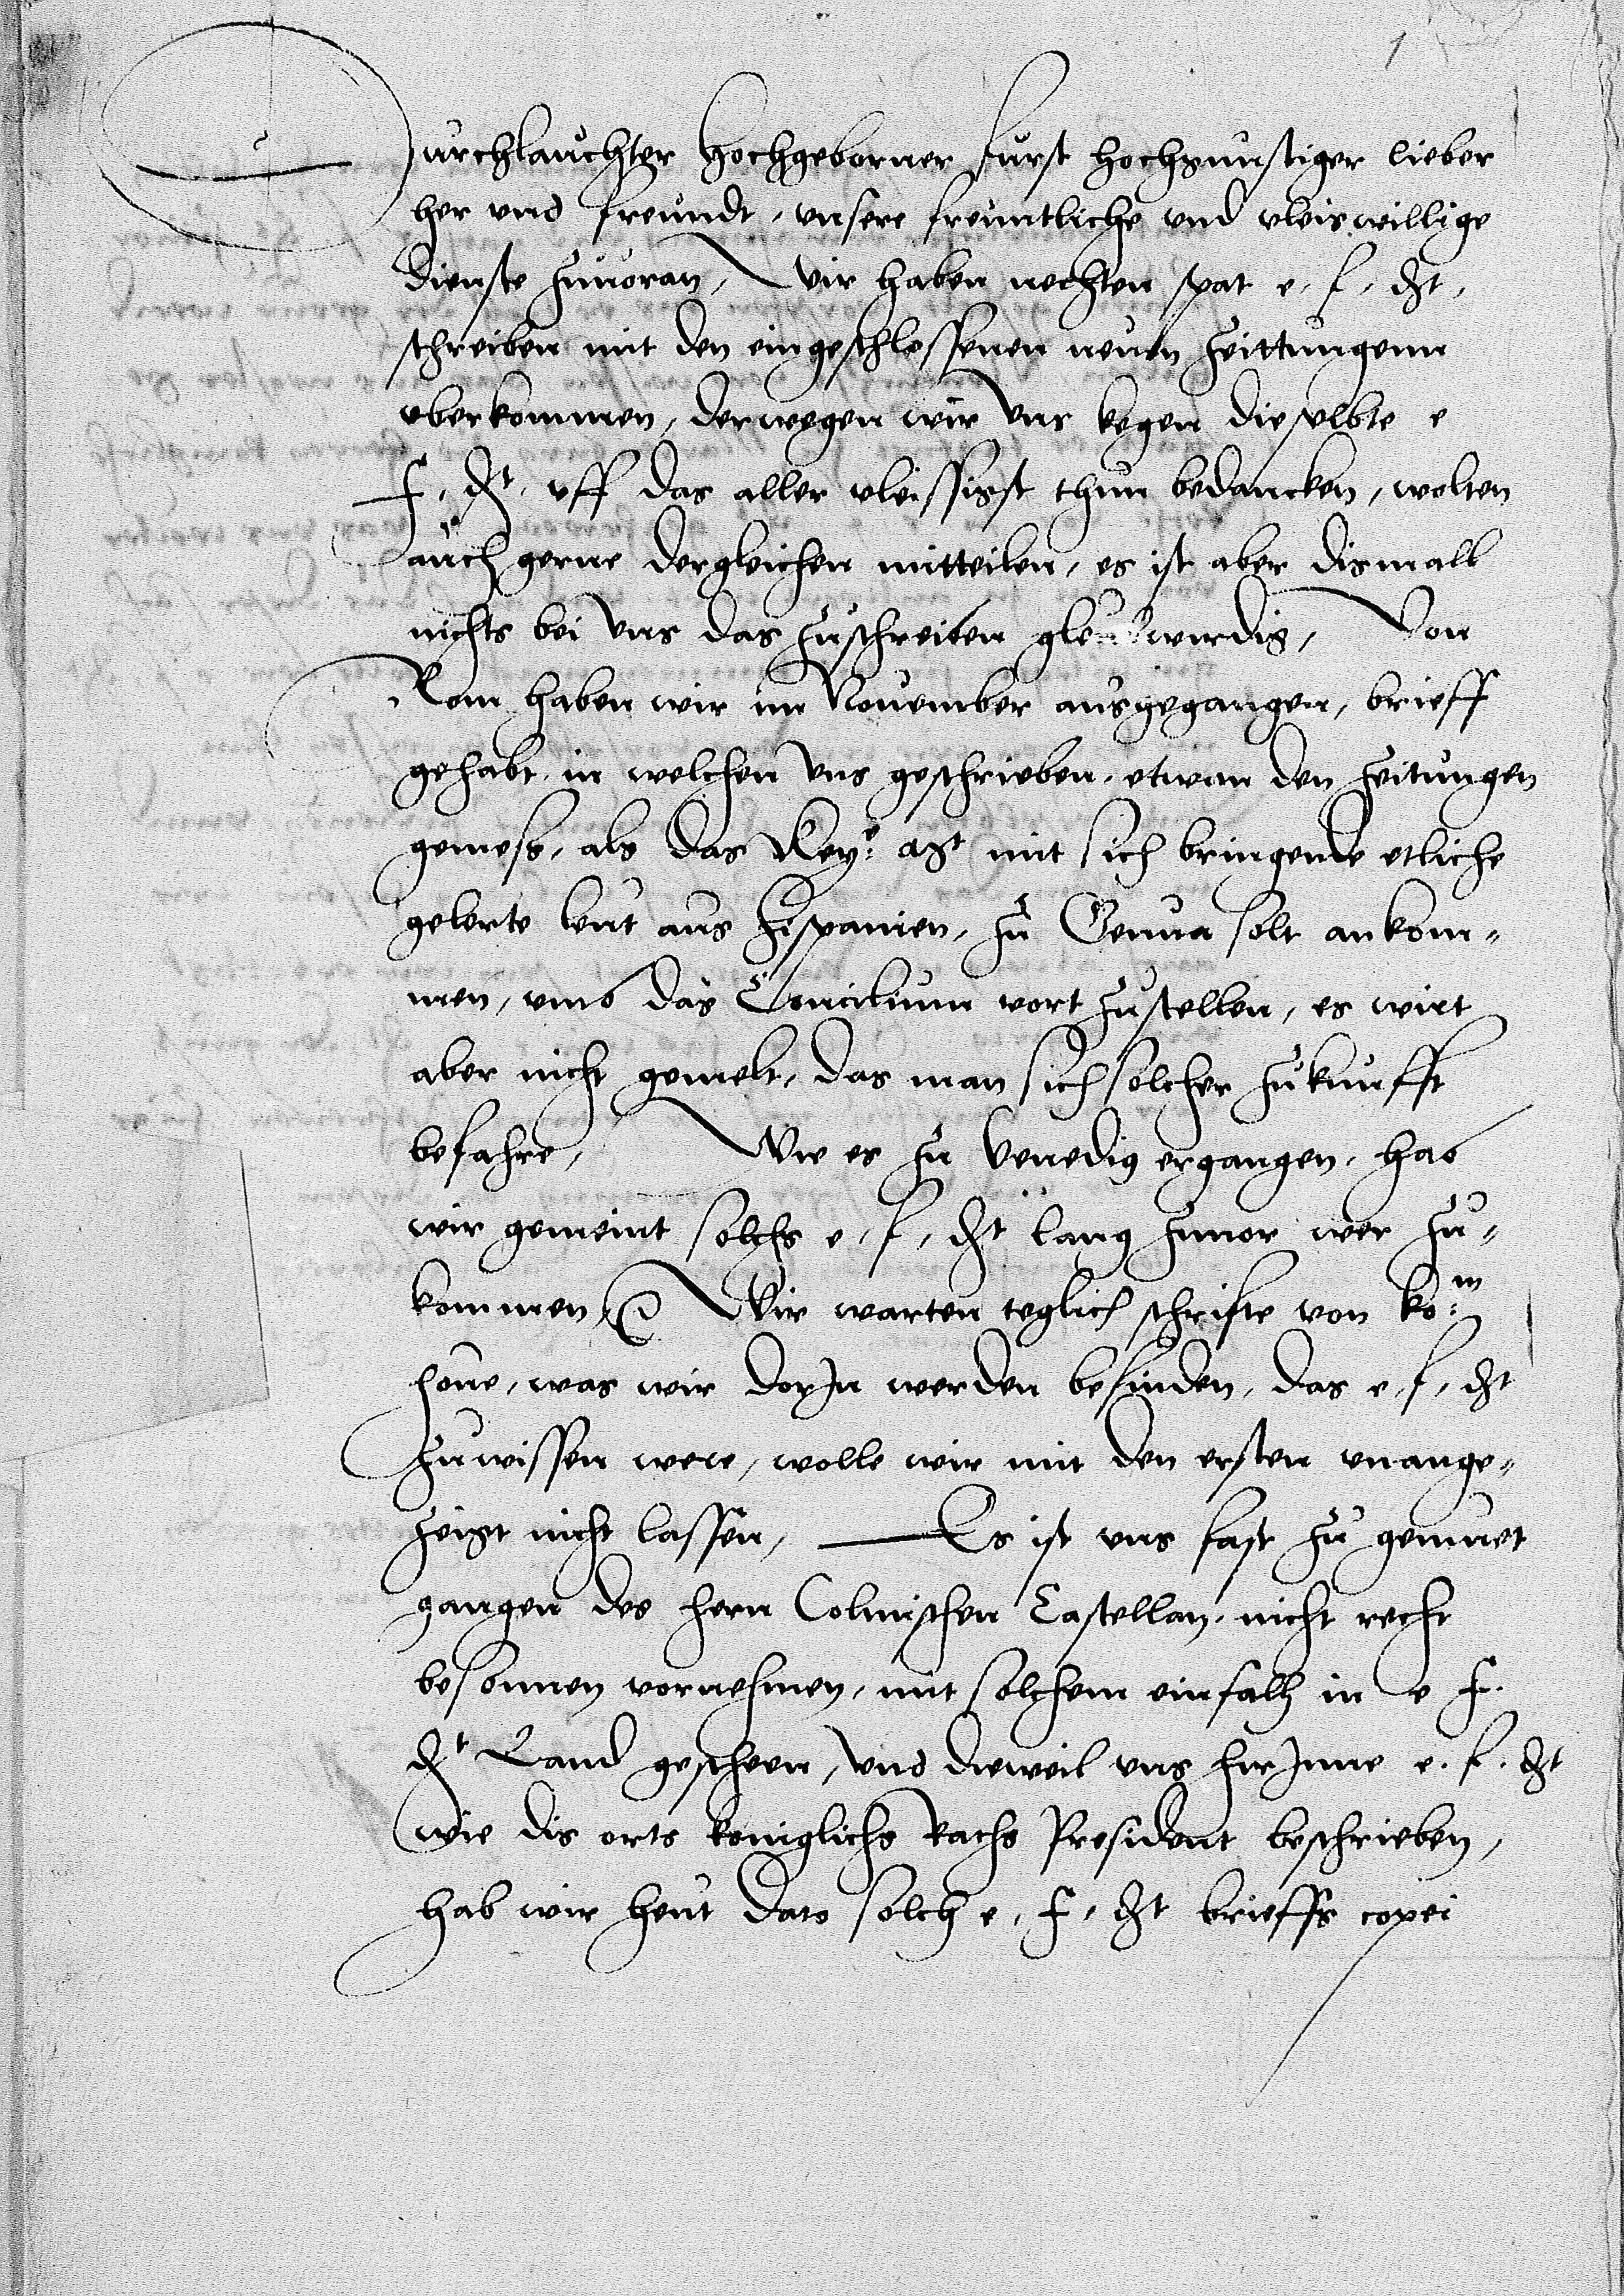 1
Durchlauchter Hochgeborner furst hochgunstiger lieber
her vnd freundt, vnsere freuntliche vnd vleiswillige
dienste zuuoran, Wir haben nechten spat e, f, dt,
schreiben mit den eingeschlossenen neuen zeittungenn
vberkommen, derwegen wir vns kegen dieselbte e
f, dt, vff das aller vleissigst thun bedancken, wolten
auch gerne dergleichen mitteilen, es ist aber dismall
nichts bei vns das zuschreiben gleubwirdig, Von
Rom haben wir im Nouember ausgegangen, brieff
gehabt, in welchen vns geschrieben, etwan den zeitungen
gemess, als das Key: Mt mit sich bringende etliche
gelerte leut aus Hispanien, zu Genua solt ankom„
men, vmb das Concilium vort zustellen, es wirt
aber nicht gemelt, das man sich solcher zukunfft
befahre, Wie es zu Venedig ergangen, hab
wir gemeint solchs e, f, dt lang zuuor wer zu„
kommen, Wir warten teglich schrifte von ko:m
hone, was wir dorJn werden befinden, das e, f, dt
zuwissen were, wolle wir mit den ersten vnange„
zeigt nicht lassen, Es ist vns fast zu gemuet
gangen des hern Colmischen Castellan, nicht recht
besonnen vornehmen, mit solchem einfalh in e f.
dt Land gescheen, vnd dieweil vns hirJnne e. f. dt
wie dis orts koniglichs Raths President beschrieben,
hab wir heut dato solch e, f, dt brieffs copei